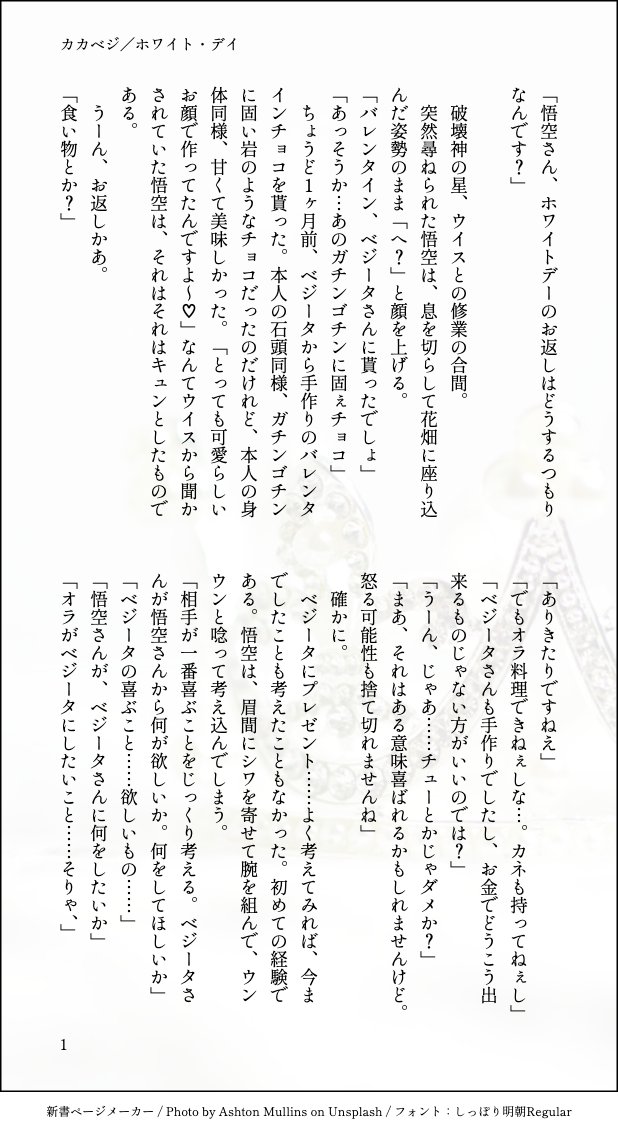 カカベジ／ホワイト・デイ
「悟空さん、ホワイトデーのお返しはどうするつもり
なんです？」
破壊神の星、ウイスとの修業の合間。
突然尋ねられた悟空は、息を切らして花畑に座り込
んだ姿勢のまま「へ？」と顔を上げる。
「バレンタイン、ベジータさんに貰ったでしょ」
「あっそうか…あのガチンゴチンに固ぇチョコ」
ちょうど１ヶ月前、ベジータから手作りのバレンタ
インチョコを貰った。本人の石頭同様、ガチンゴチン
に固い岩のようなチョコだったのだけれど、本人の身
体同様、甘くて美味しかった。「とっても可愛らしい
お顔で作ってたんですよ〜♡」なんてウイスから聞か
されていた悟空は、それはそれはキュンとしたもので
ある。
うーん、お返しかあ。
「食い物とか？」
「ありきたりですねえ」
「でもオラ料理できねぇしな…。カネも持ってねぇし」
「ベジータさんも手作りでしたし、お金でどうこう出
来るものじゃない方がいいのでは？」
「うーん、じゃあ……チューとかじゃダメか？」
「まあ、それはある意味喜ばれるかもしれませんけど。
怒る可能性も捨て切れませんね」
確かに。
ベジータにプレゼント……よく考えてみれば、今ま
でしたことも考えたこともなかった。初めての経験で
ある。悟空は、眉間にシワを寄せて腕を組んで、ウン
ウンと唸って考え込んでしまう。
「相手が一番喜ぶことをじっくり考える。ベジータさ
んが悟空さんから何が欲しいか。何をしてほしいか」
「ベジータの喜ぶこと……欲しいもの……」
「悟空さんが、ベジータさんに何をしたいか」
「オラがベジータにしたいこと……そりゃ、」
1
新書ページメーカー / Photo by Ashton Mullins on Unsplash / フォント：しっぽり明朝Regular